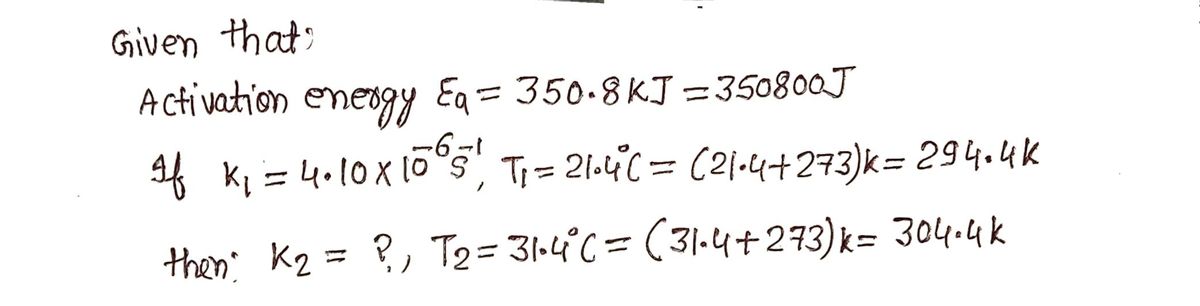 Given that;
Activation energy Ea = 350.8 KJ = 350800J
If K₁ = 4.10 X 10⁻⁶ s⁻¹, T₁ = 21.4°C = (21.4+273)k = 294.4K
then: K₂ = ?, T₂ = 31.4°C = (31.4+273)k = 304.4k